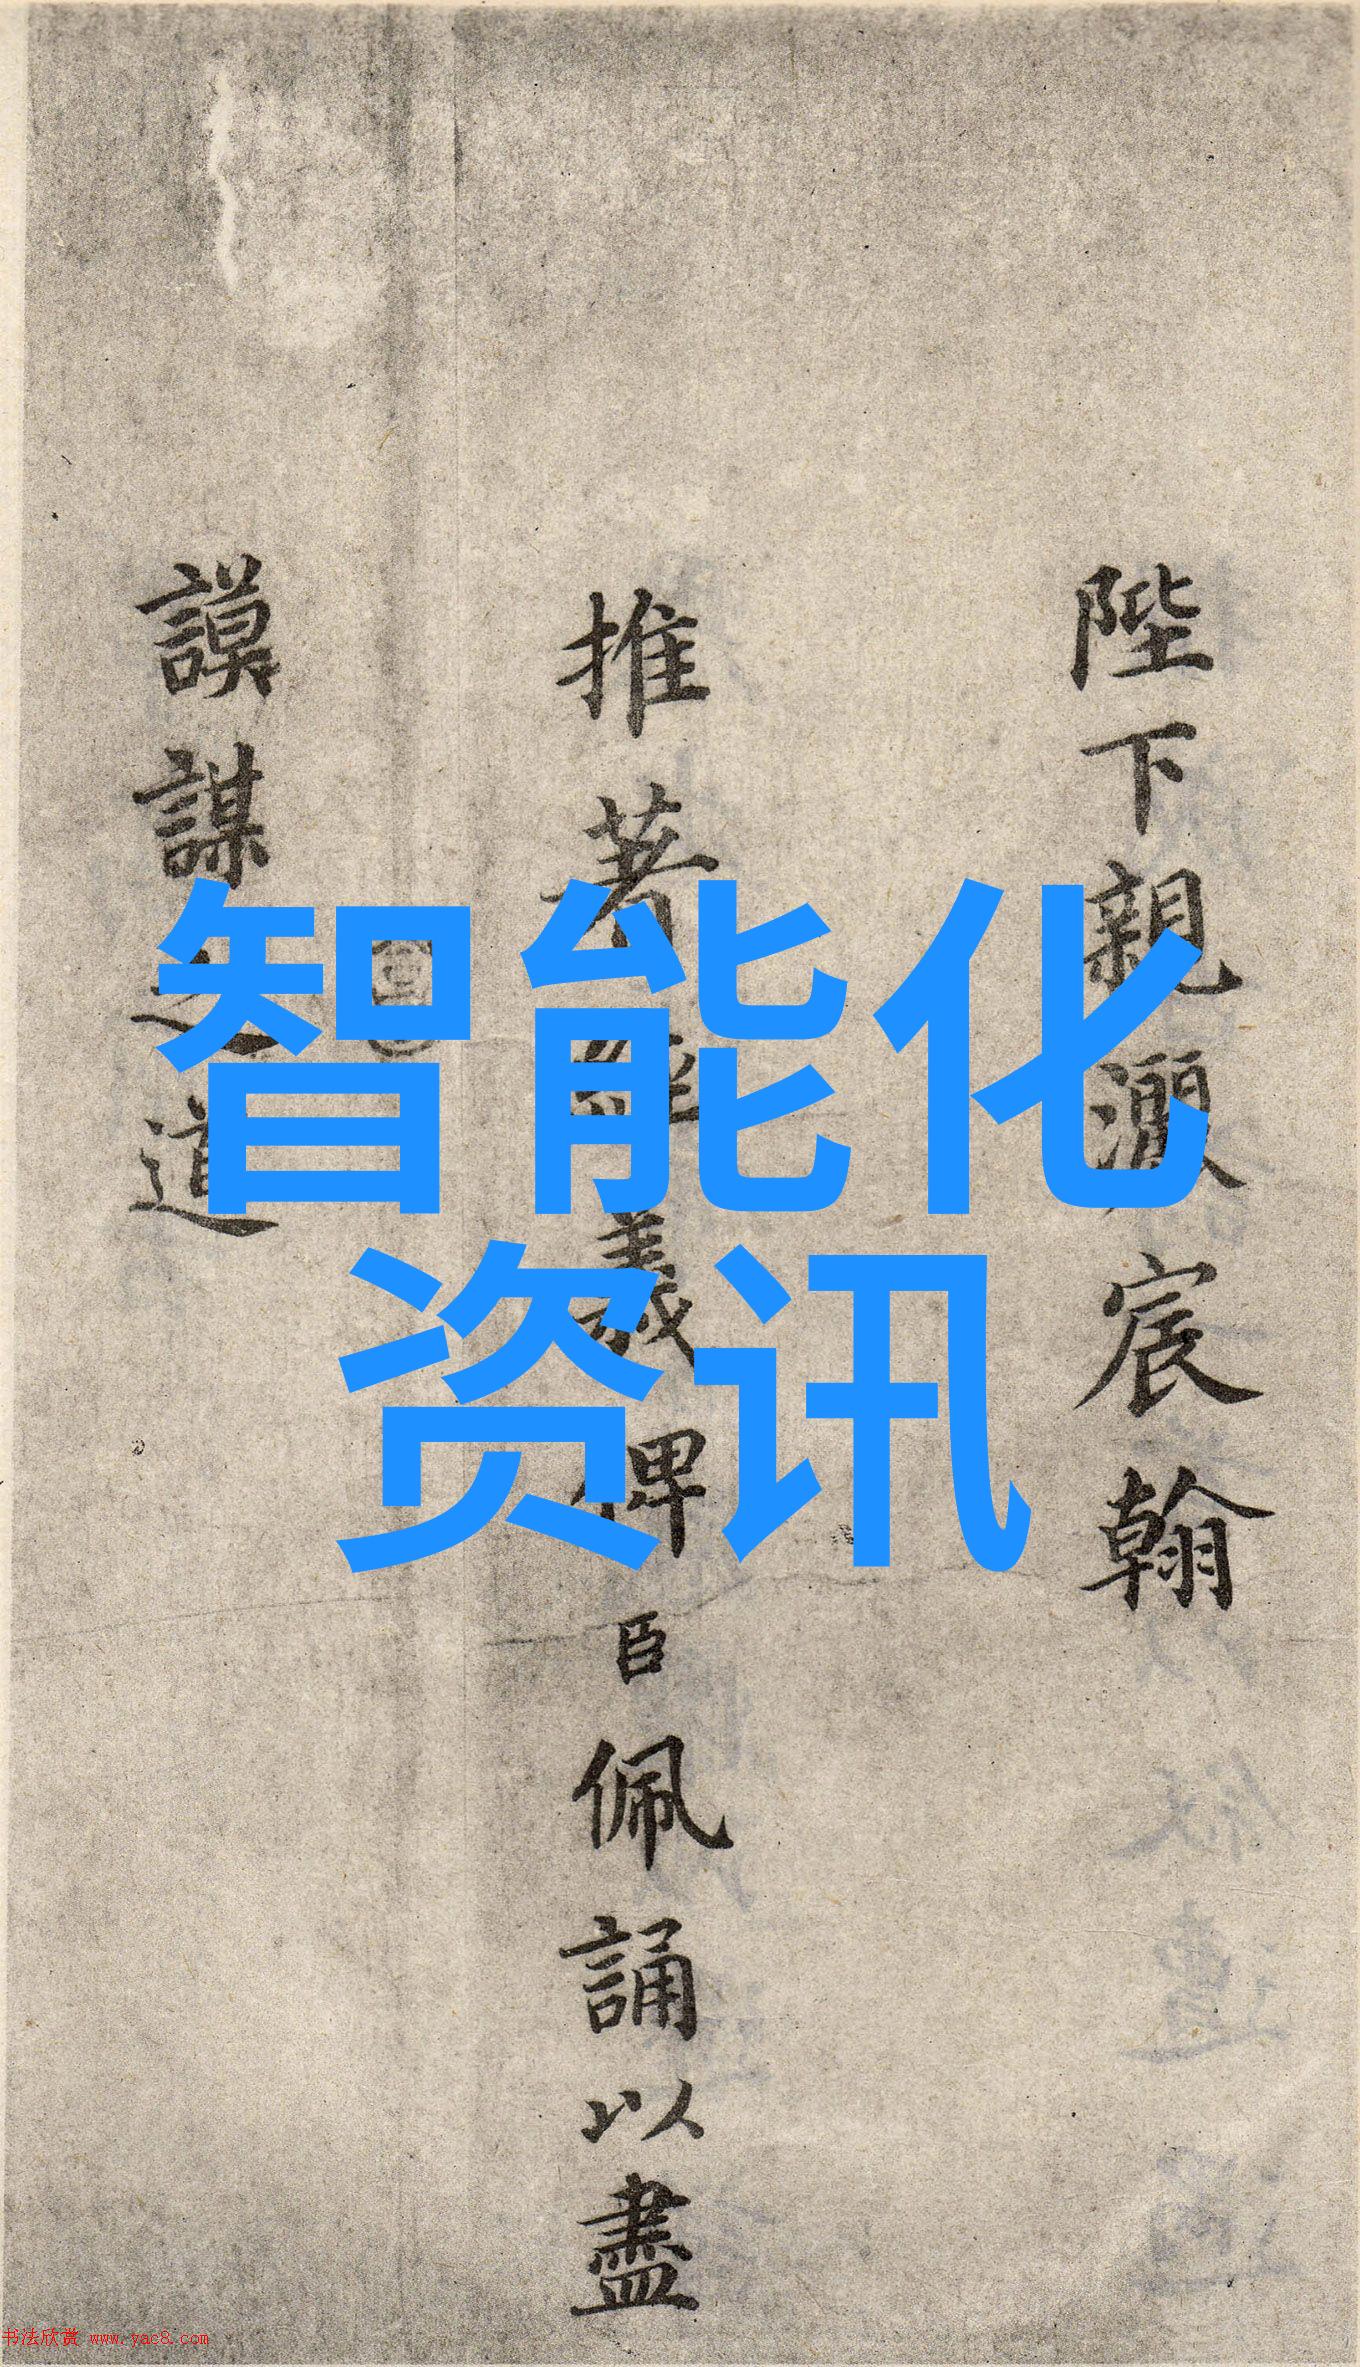 陛下親灑宸翰
推著經義俾臣佩誦以盡
謨謀之道
智能化
资讯
书法欣赏 www.yac8.com